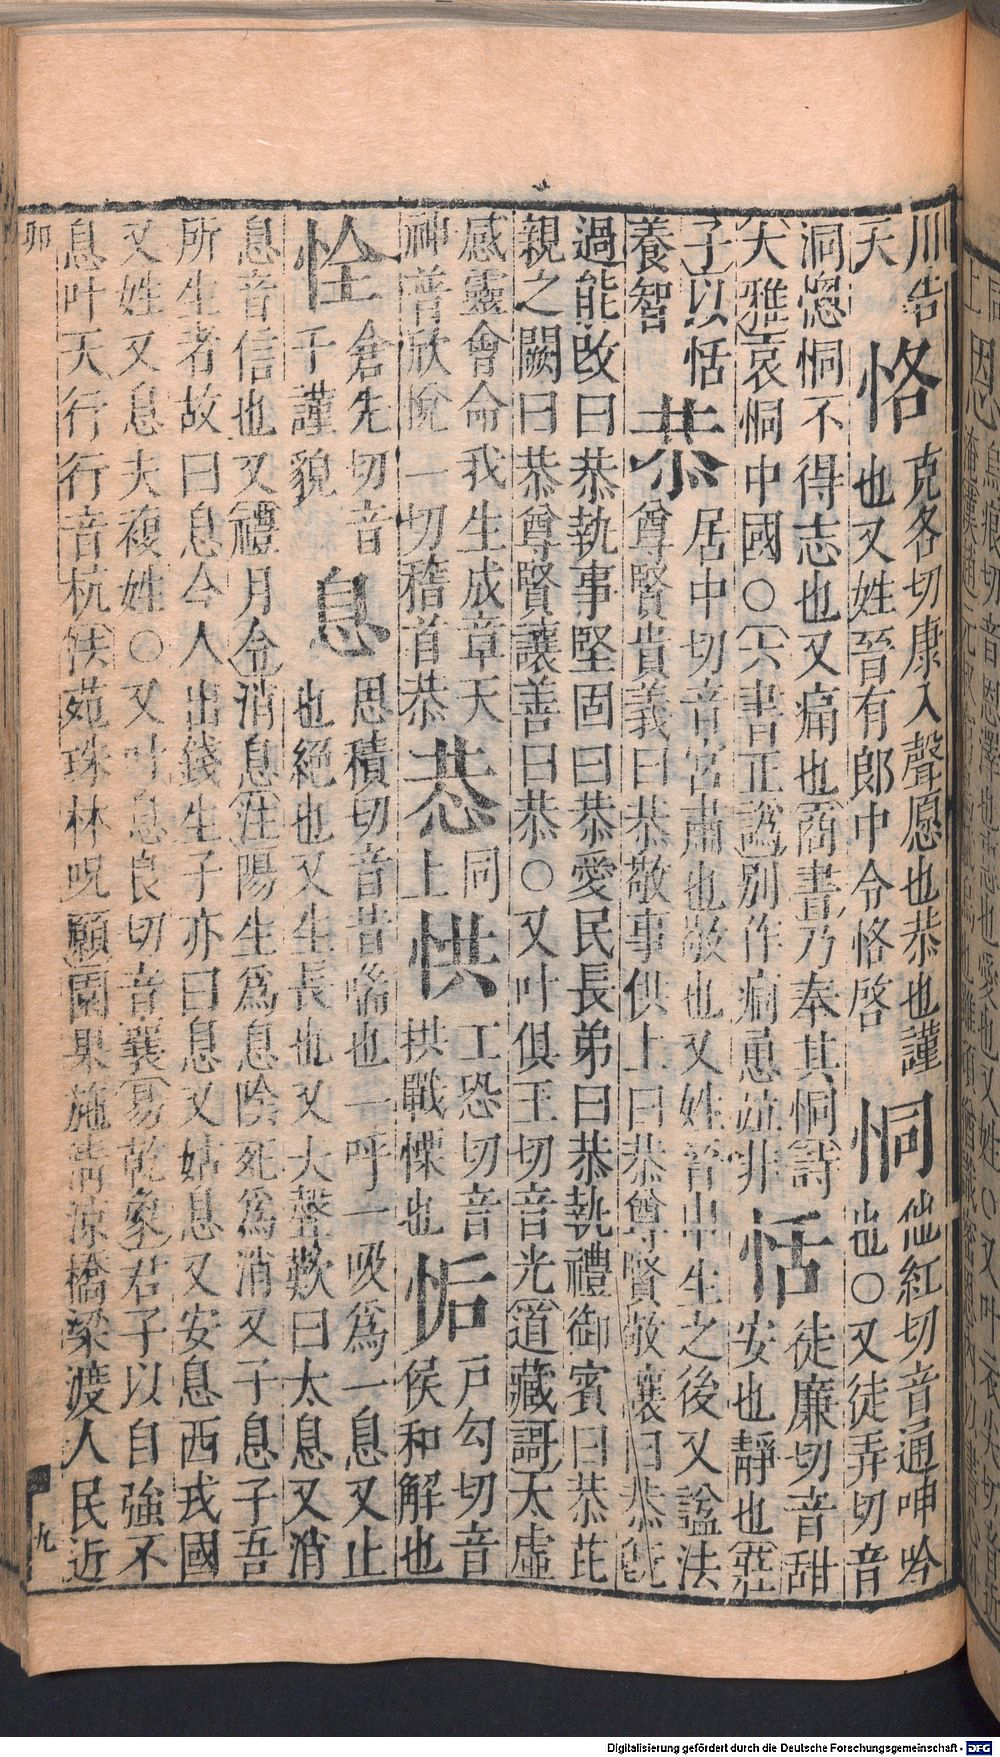 川告
天
恪 克各切康入聲愿也恭也謹
也又姓晉有郎中令恪啓
恫 他紅切音通呻吟
也○又徒弄切音
洞愡恫不得志也又痛也商書乃奉其恫詩
大雅哀恫中國○六書正譌別作痌恿竝非
恬 徒廉切音甜
安也靜也莊
子以恬
養智
恭 居中切音宮肅也敬也又姓晉申生之後又諡法
尊賢貴義曰恭敬事供上曰恭尊賢敬讓曰恭旣
過能改曰恭執事堅固曰恭愛民長弟曰恭執禮御賓曰恭芘
親之闕曰恭尊賢讓善曰恭○又叶俱王切音光道藏謌太虛
感靈會命我生成章天
神普欣悅一切稽首恭
同
上
㤨 工恐切音
拱戰慄也
㤧 戶勾切音
侯和解也
恮 倉先切音
于謹貌
息 思積切音昔喘也一呼一吸爲一息又止
也絕也又生長也又大聲歎曰太息又消
息音信也又禮月令消息注陽生爲息陰死爲消又子息子吾
所生者故曰息今人出錢生子亦曰息又姑息又安息西戎國
又姓又息夫複姓○又叶息良切音襄易乾象君子以自強不
息叶天行行音杭法苑珠林呪願園果施淸涼橋梁渡人民近
卯
九
Digitalisierung gefördert durch die Deutsche Forschungsgemeinschaft - DFG